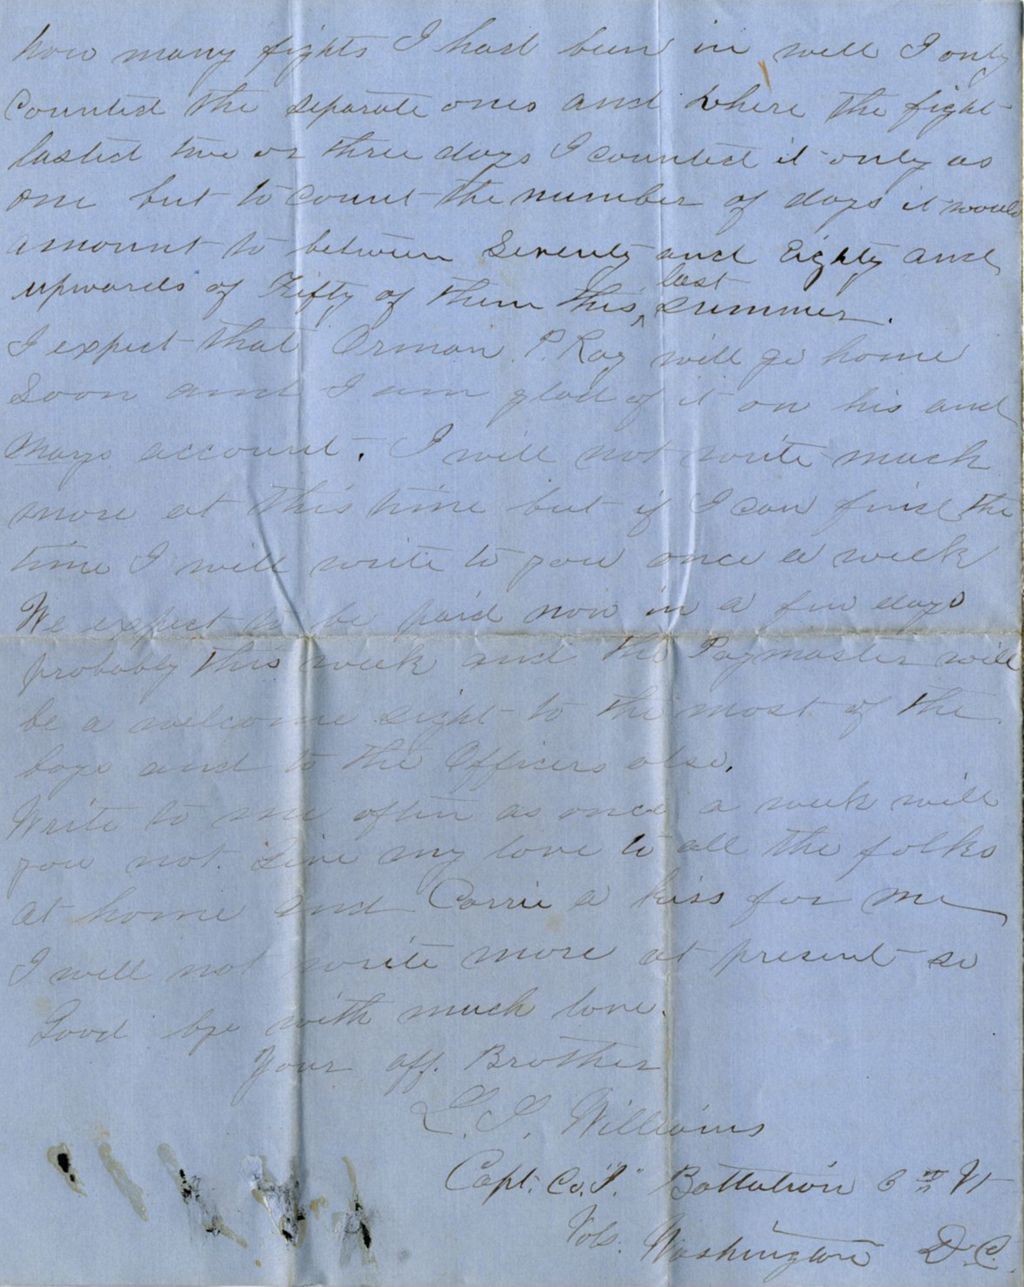 how many fights I had been in well I only
Counted the separate ones and where the fight
lasted two or three days I counted it only as
one but to count the number of days it would
amount to between Seventy and Eighty and
upwards of Fifty of them this last summer.
I expect that Orman P. Ray will go home
Soon and I am glad of it on his and
Marys account. I will not write much
more at this time but if I can find the
time I will write to you once a week
We expect to be paid now in a few days
probably this week and the Paymaster will
be a welcome sight to the most of the
boys and to the Officers also.
Write to me often as once a week will
you not. Give my love to all the folks
at home and Carrie a kiss for me
I will not write more at present so
Good bye with much love.
Your aff. Brother
Williams
Capt. Co. Battalion Vt
Vols. Washington D.C.